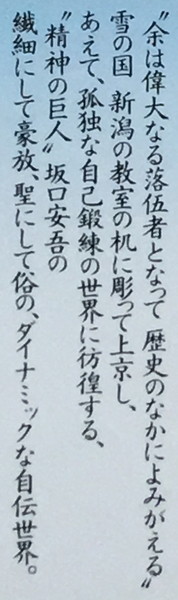 〝余は偉大なる落伍者となって 歴史のなかによみがえる〟
雪の国 新潟の教室の机に彫って上京し、
あえて、孤独な自己鍛練の世界に彷徨する、
〝精神の巨人〟坂口安吾の
繊細にして豪放、聖にして俗の、ダイナミックな自伝世界。